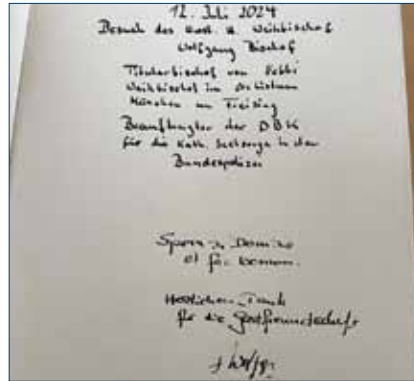 12. Juli 2024
Besuch des Hwst. H. Weihbischof
Wolfgang Bischof
Titularbischof von Nebbi
Weihbischof im Erzbistum
München und Freising
Beauftragter der DBK
für die kath. Seelsorge in der
Bundespolizei
Spera in Domino
et fac bonum.
Herzlichen Dank
für die Gastfreundschaft